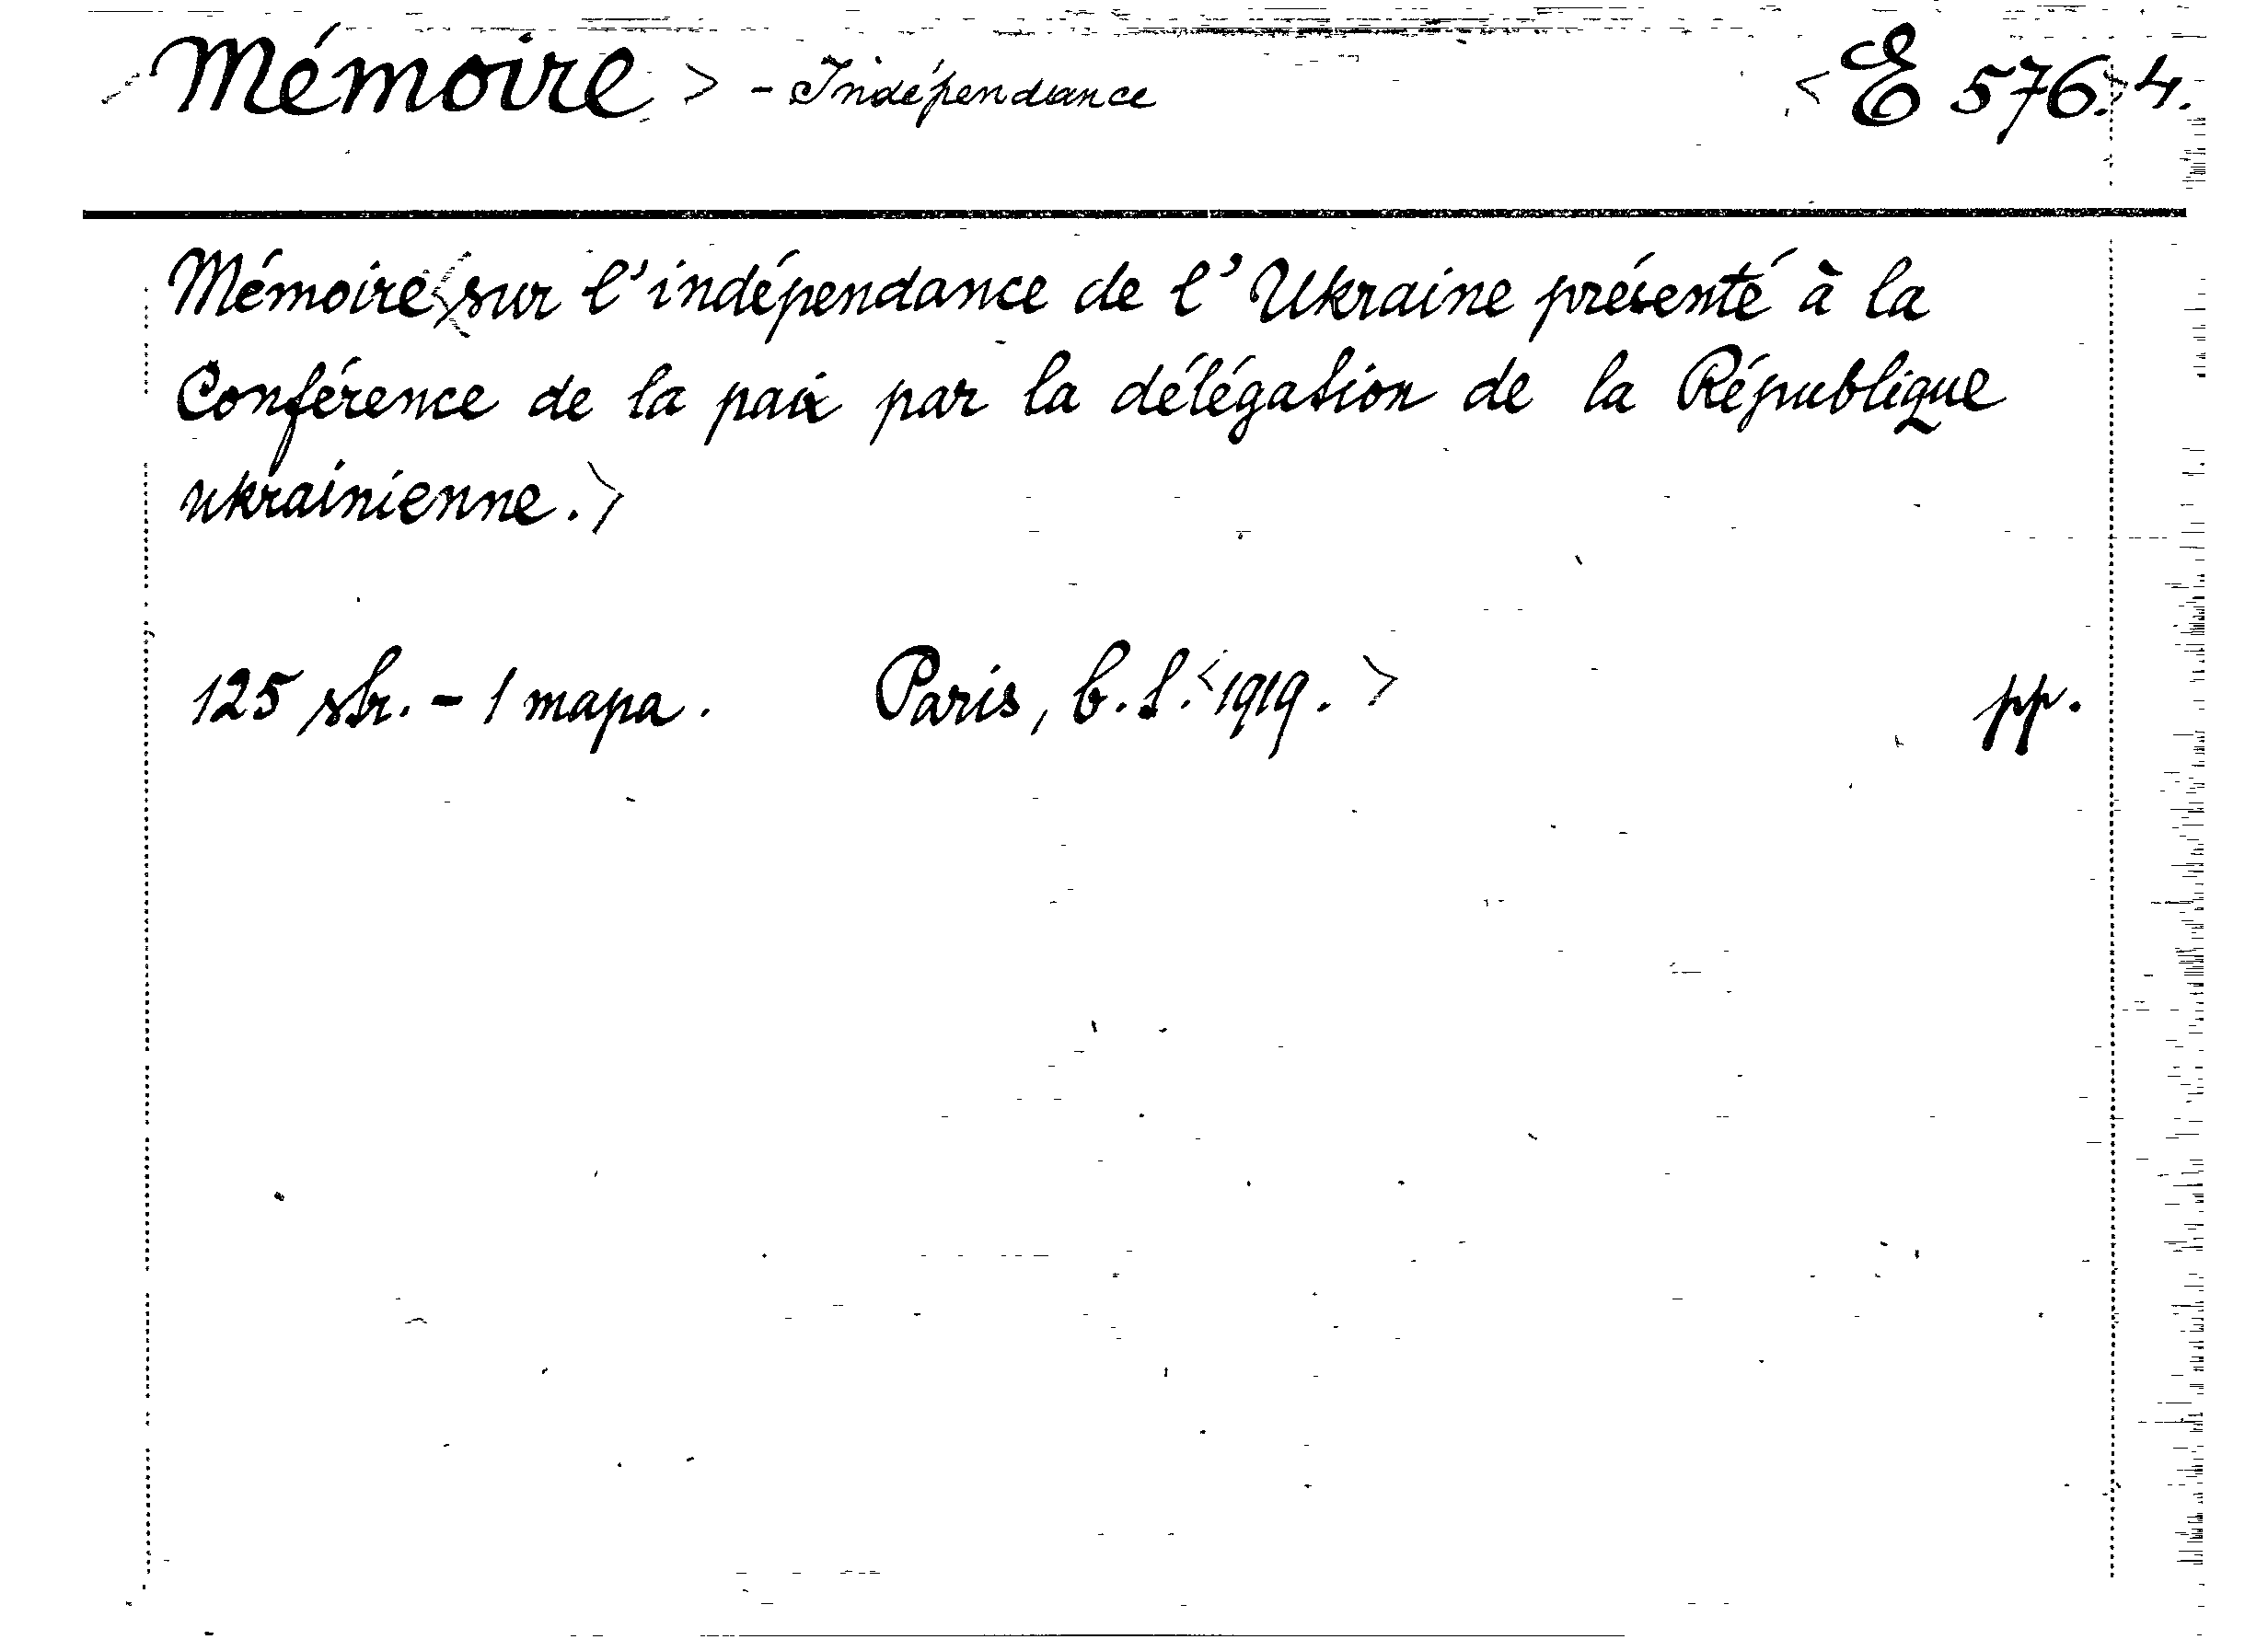 <Mémoire> - Indépendance <E 576.>4.
Mémoire <sur l'indépendance de l'Ukraine présenté à la
Conférence de la paix par la délégation de la République
ukrainienne.>
125 str. - 1 mapa. Paris, b. l. <1919.> pp.